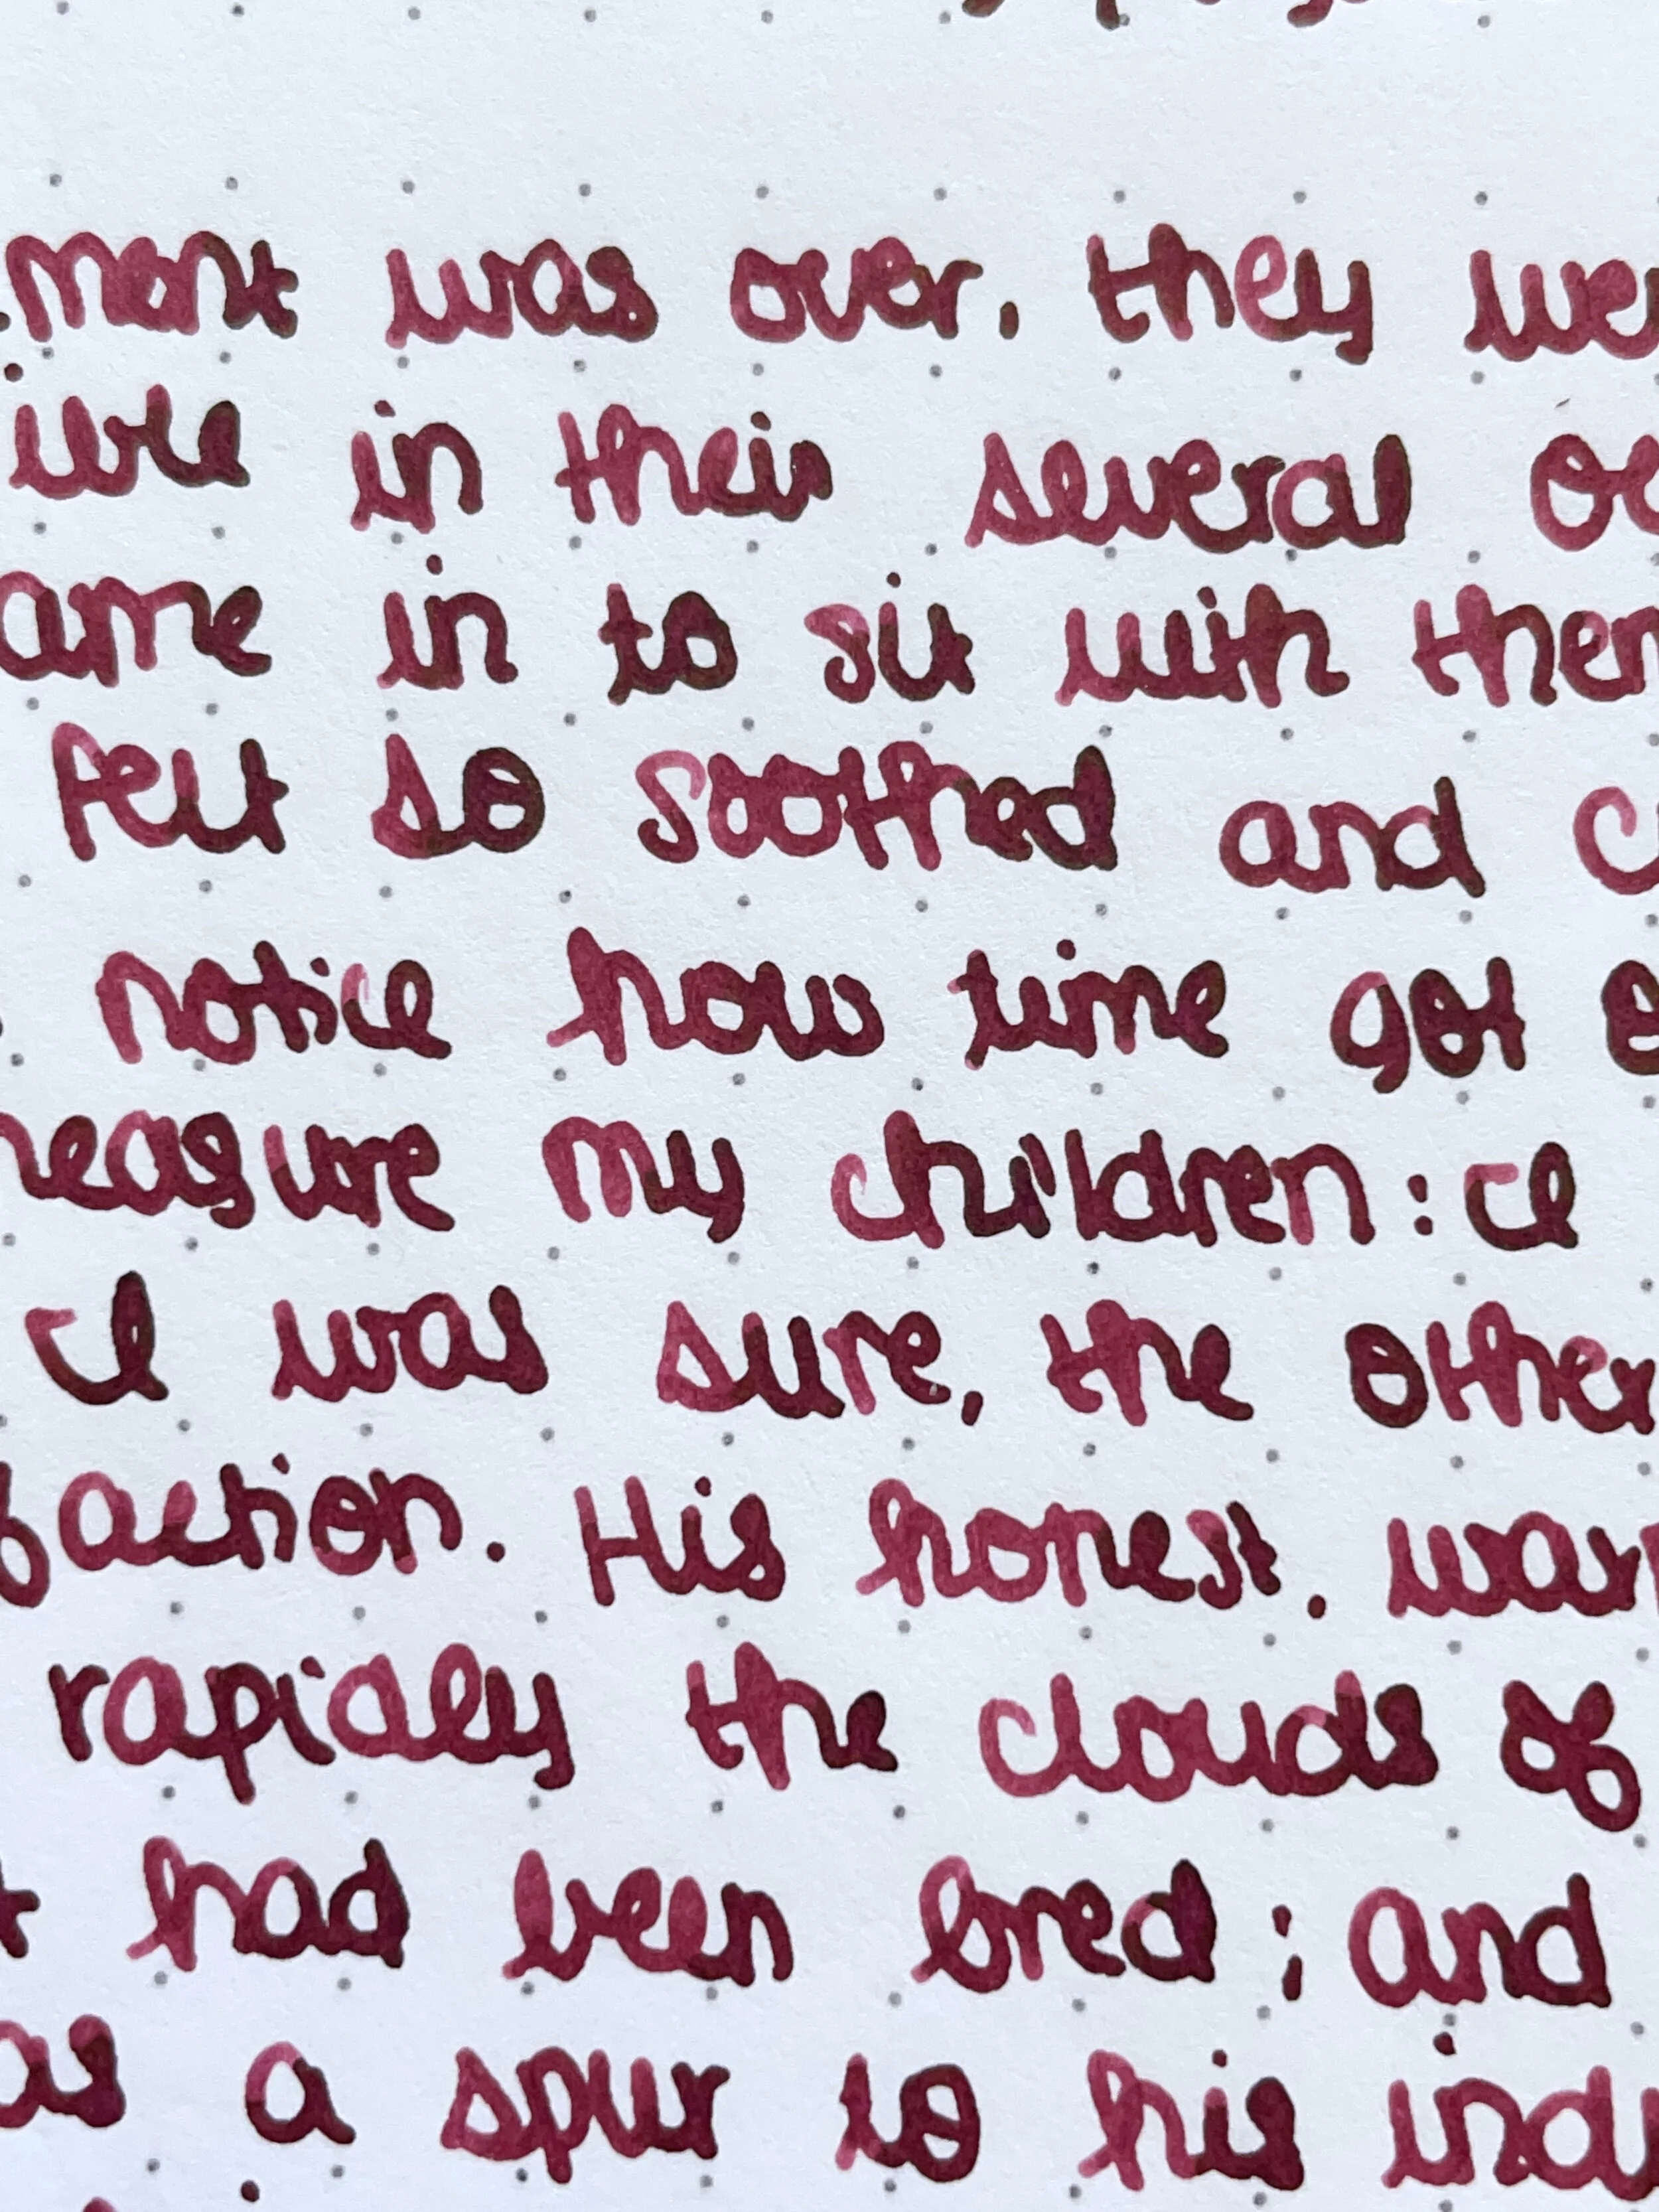 ment was over, they wer
ure in their several oc
ame in to sit with them
felt so soothed and c
notice how time got o
measure my children: I
I was sure, the other
faction. His honest, war
rapidly the clouds of
t had been bred; and
as a spur to his indu